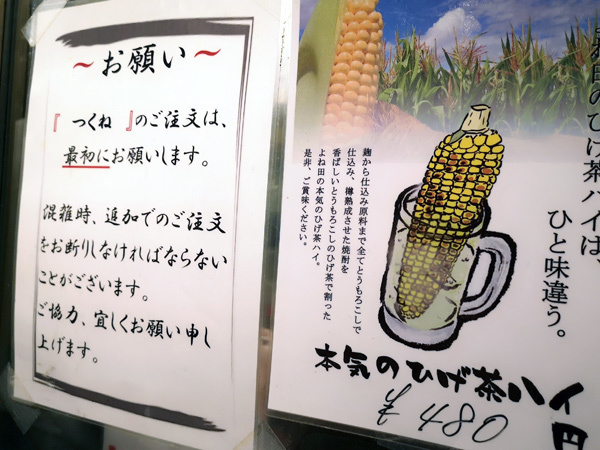 ～お願い～
『 つくね 』のご注文は、
最初にお願いします。
混雑時、追加でのご注文
をお断りしなければならない
ことがございます。
ご協力、宜しくお願い申し
上げます。
田のひげ茶ハイは、
ひと味違う。
麹から仕込み原料まで全てとうもろこしで
仕込み、樽熟成させた焼酎を
香ばしいとうもろこしのひげ茶で割った
よね田の本気のひげ茶ハイ。
是非、ご賞味ください。
本気のひげ茶ハイ
¥480
円